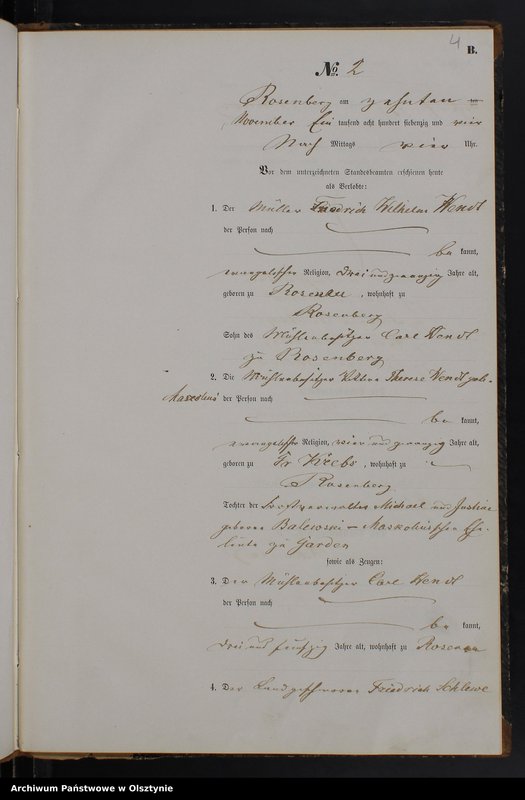 4
B.
No. 2
Rosenberg am zehnten
November Ein tausend acht hundert siebenzig und vier
Nach Mittags vier Uhr.
Vor dem unterzeichneten Standesbeamten erschienen heute
als Verlobte:
1. Der Müller Friedrich Wilhelm Wendt
der Person nach
be kannt,
evangelischer Religion, drei und zwanzig Jahre alt,
geboren zu , wohnhaft zu
Rosenberg
Sohn des Mühlenbesitzer Carl Wendt
zu Rosenberg
2. Die Mühlenbesitzer Wittwe Therese Wendt geb.
der Person nach
be kannt,
evangelischer Religion, vier und zwanzig Jahre alt,
geboren zu Gr Krebs, wohnhaft zu
Rosenberg
Tochter der Michael und Justine
geborne Balewski - Ehe-
leute zu Garden
sowie als Zeugen:
3. Der Mühlenbesitzer Carl Wendt
der Person nach
be kannt,
drei und fünfzig Jahre alt, wohnhaft zu
4. Der Landgeschworne Friedrich Schlewe
Archiwum Państwowe w Olsztynie